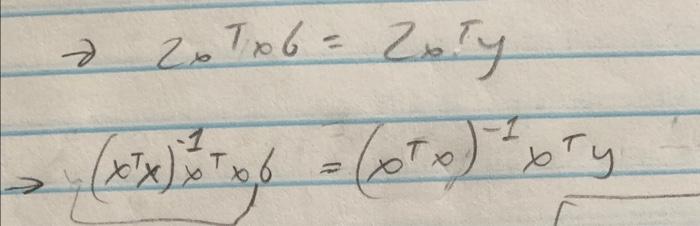 → 2x^T x b = 2x^T y
→ (x^T x)^-1 x^T x b = (x^T x)^-1 x^T y